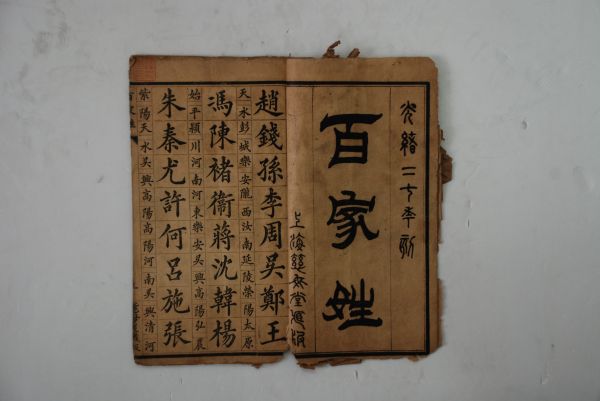 光緒二七年
百家姓
上海慈母堂
趙錢孫李周吳鄭王
天水彭城樂安隴西汝南延陵榮陽太原
馮陳褚衞蔣沈韓楊
始平潁川河南河東樂安吳興高陽弘農
朱秦尤許何呂施張
紫陽天水吳興高陽高陽河南吳興清河